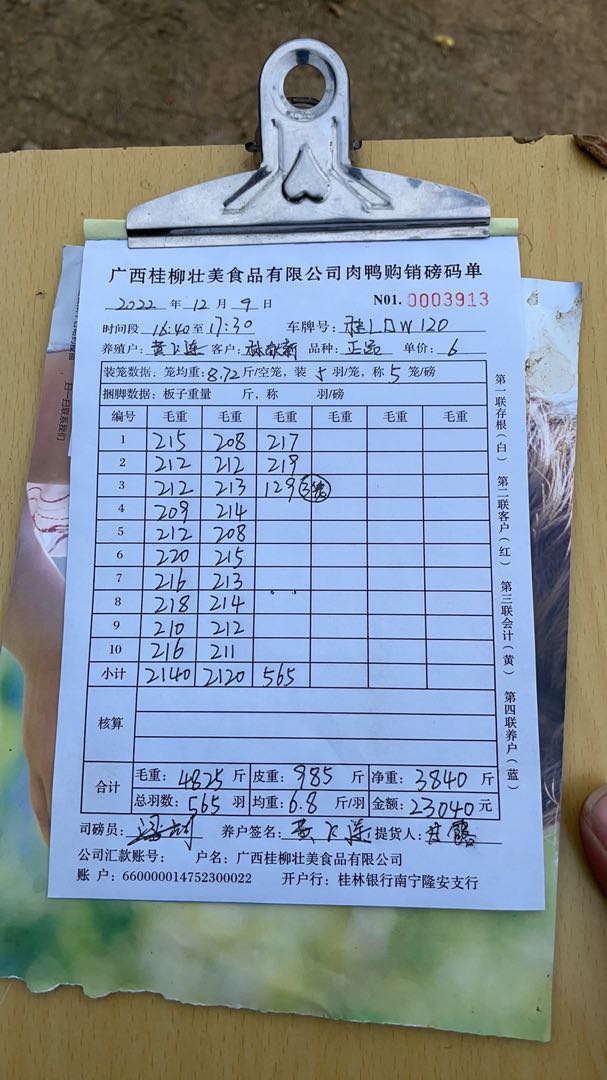 广西桂柳壮美食品有限公司肉鸭购销磅码单
2022 年 12 月 9 日 N01. 0003913
时间段 16:40 至 17:30 车牌号: 桂LDW120
养殖户: 黄 连 客户: 新 品种: 正品 单价: 6
装笼数据: 笼均重: 8.72 斤/空笼, 装 5 羽/笼, 称 5 笼/磅
捆脚数据: 板子重量 斤, 称 羽/磅
编号 毛重 毛重 毛重 毛重 毛重 毛重
1 215 208 217
2 212 212 219
3 212 213 129 3笼
4 209 214
5 212 208
6 220 215
7 216 213
8 218 214
9 210 212
10 216 211
小计 2140 2120 565
核算
合计 毛重: 4825 斤 皮重: 985 斤 净重: 3840 斤
总羽数: 565 羽 均重: 6.8 斤/羽 金额: 23040 元
司磅员: 养户签名: 黄 连 提货人:
公司汇款账号: 户名: 广西桂柳壮美食品有限公司
账 户: 660000014752300022 开户行: 桂林银行南宁隆安支行
第一联存根(白) 第二联客户(红) 第三联会计(黄) 第四联养户(蓝)
扫一扫联系我们